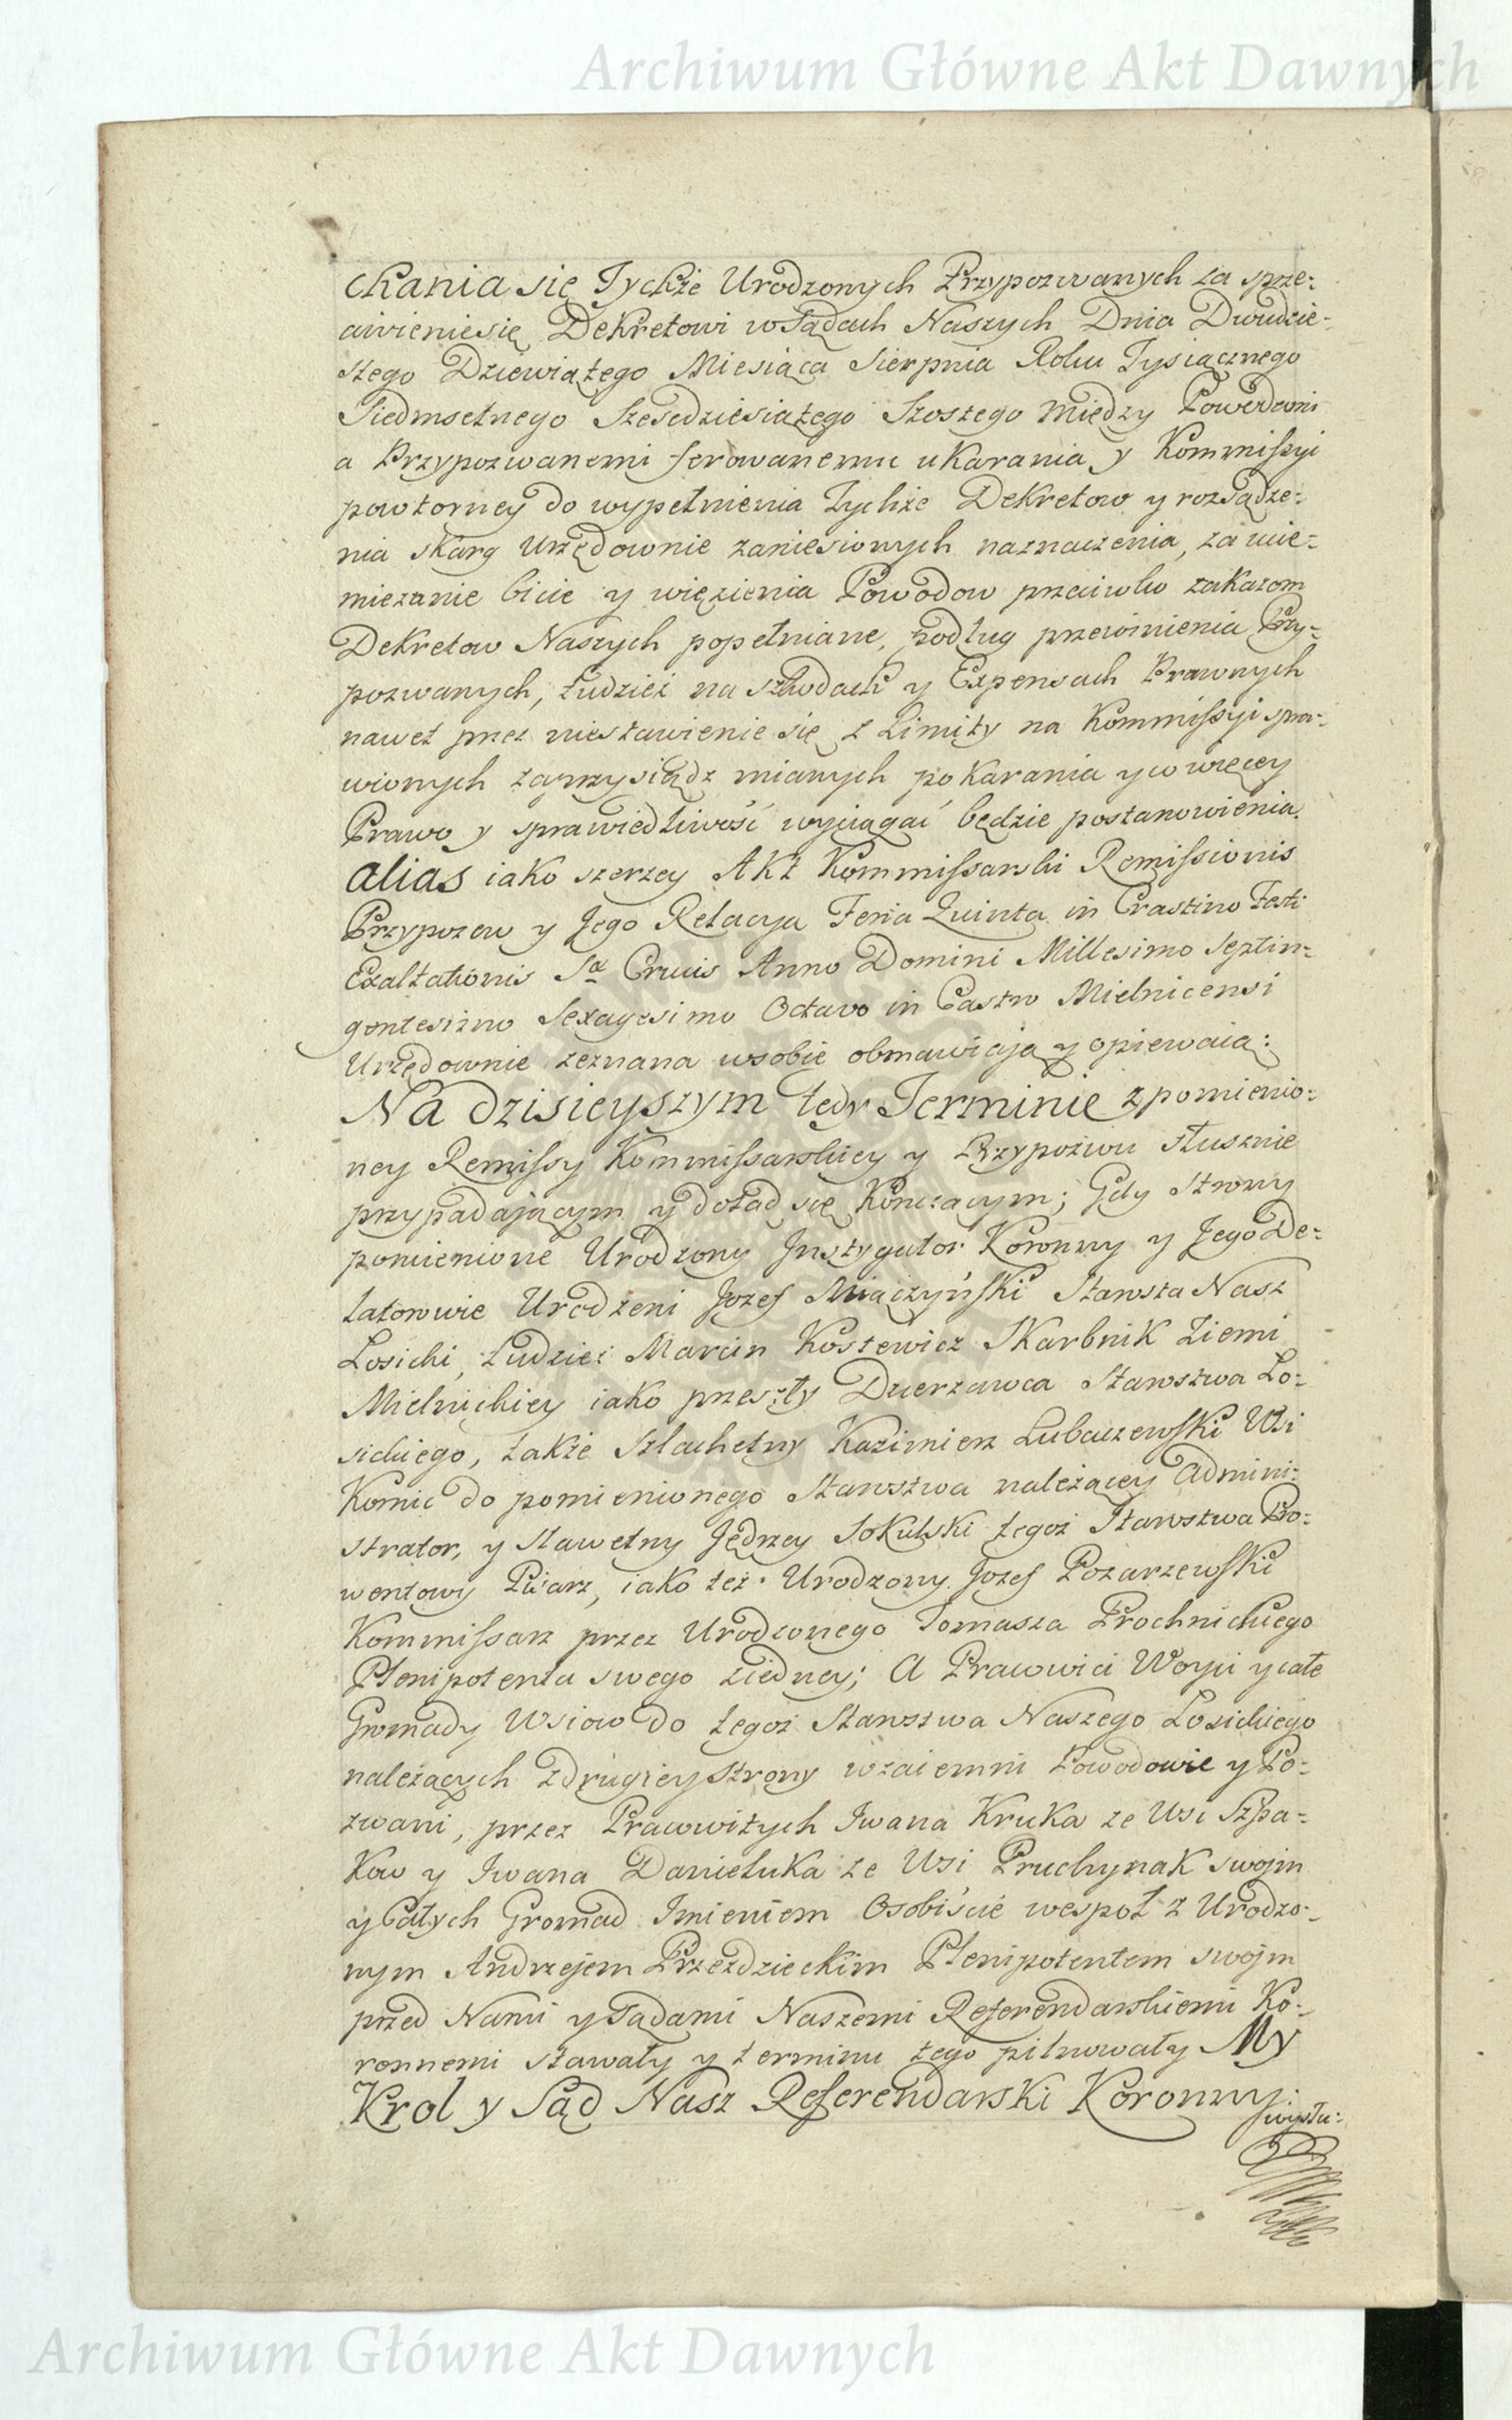 Archiwum Główne Akt Dawnych
ckania się Tychże Urodzonych Przypozwanych za sprze-
ciwienie się Dekretowi w Sądach Naszych Dnia Dwudzie-
stego Dziewiątego Miesiąca Sierpnia Roku Tysiącznego
Siedmsetnego Sześćdziesiątego Szostego między Powodami
a Przypozwanemi ferowanemu ukarania y Kommissyi
powtorney do wypełnienia Tychże Dekretow y rozsądze-
nia skarg Urzędownie zaniesionych naznaczenia, za ucie-
miezanie bicie y więzienia Powodow przeciwko zakazom
Dekretow Naszych popełniane, podług przewinienia Przy-
pozwanych, tudzież na szkodach y Expensach Prawnych
nawet przez niestawienie się z Limity na Kommissyi spra-
wionych zaprzysiądz mianych pokarania y co więcey
Prawo y sprawiedliwość wyciągać będzie postanowienia.
alias iako szerzey Akt Kommissarski Remissionis
Przypozew y Jego Relacya Feria Quinta in Crastino Festi
Exaltationis Sæ Crucis Anno Domini Millesimo Septin-
gentesimo Sexagesimo Octavo in Castro Mielnicensi
Urzędownie zeznana w sobie obmawiaja y opiewaia:
Na dzisieyszym tedy Terminie z pomienio-
ney Remissy Kommissarskiey y Przypozwu słusznie
przypadającym y dotąd się kończącym; Gdy Strony
pomienione Urodzony Instygator Koronny y Jego De-
latorowie Urodzeni Jozef Miączyński Starosta Nasz
Łosicki, tudzież Marcin Kostewicz Skarbnik Ziemi
Mielnickiey iako przeszły Dzierzawca Starostwa Ło-
sickiego, także Szlachetny Kazimierz Lubaczewski Wsi
Komic do pomienionego Starostwa należącey Admini-
strator, y Sławetny Jędrzey Sokulski tegoż Starostwa Pro-
wentowy Pisarz, iako też Urodzony Jozef Pozarzewski
Kommissarz przez Urodzonego Tomasza Prochnickiego
Plenipotenta swego z iedney; A Prawowici Woyci y całe
Gromady Wsiow do tegoż Starostwa Naszego Łosickiego
należących z drugiey strony wzaiemni Powodowie y Po-
zwani, przez Prawowitych Iwana Kruka ze Wsi Szpa-
kow y Iwana Danieluka ze Wsi Pruchynak swoim
y Całych Gromad Imieniem Osobiście wespoł z Urodzo-
nym Andrzejem Przezdzieckim Plenipotentem swoim
przed Nami y Sądami Naszemi Referendarskiemi Ko-
ronnemi stawały y terminu tego pilnowały My
Krol y Sąd Nasz Referendarski Koronny
wysłu-
Archiwum Główne Akt Dawnych